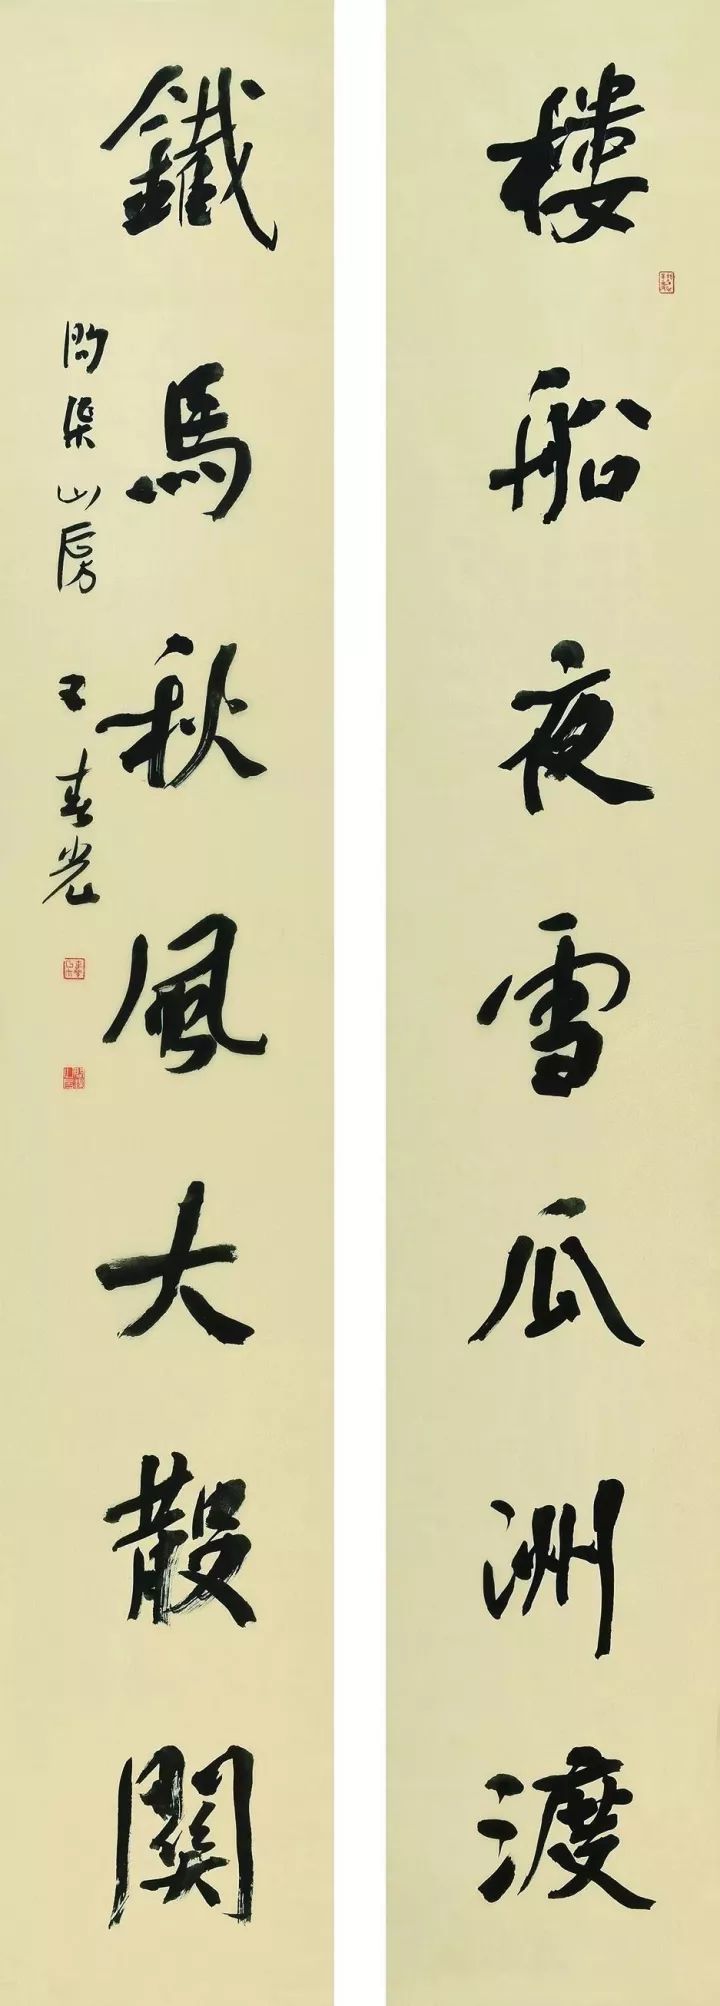 樓船夜雪瓜洲渡
鐵馬秋風大散關
問渠山房 王春光